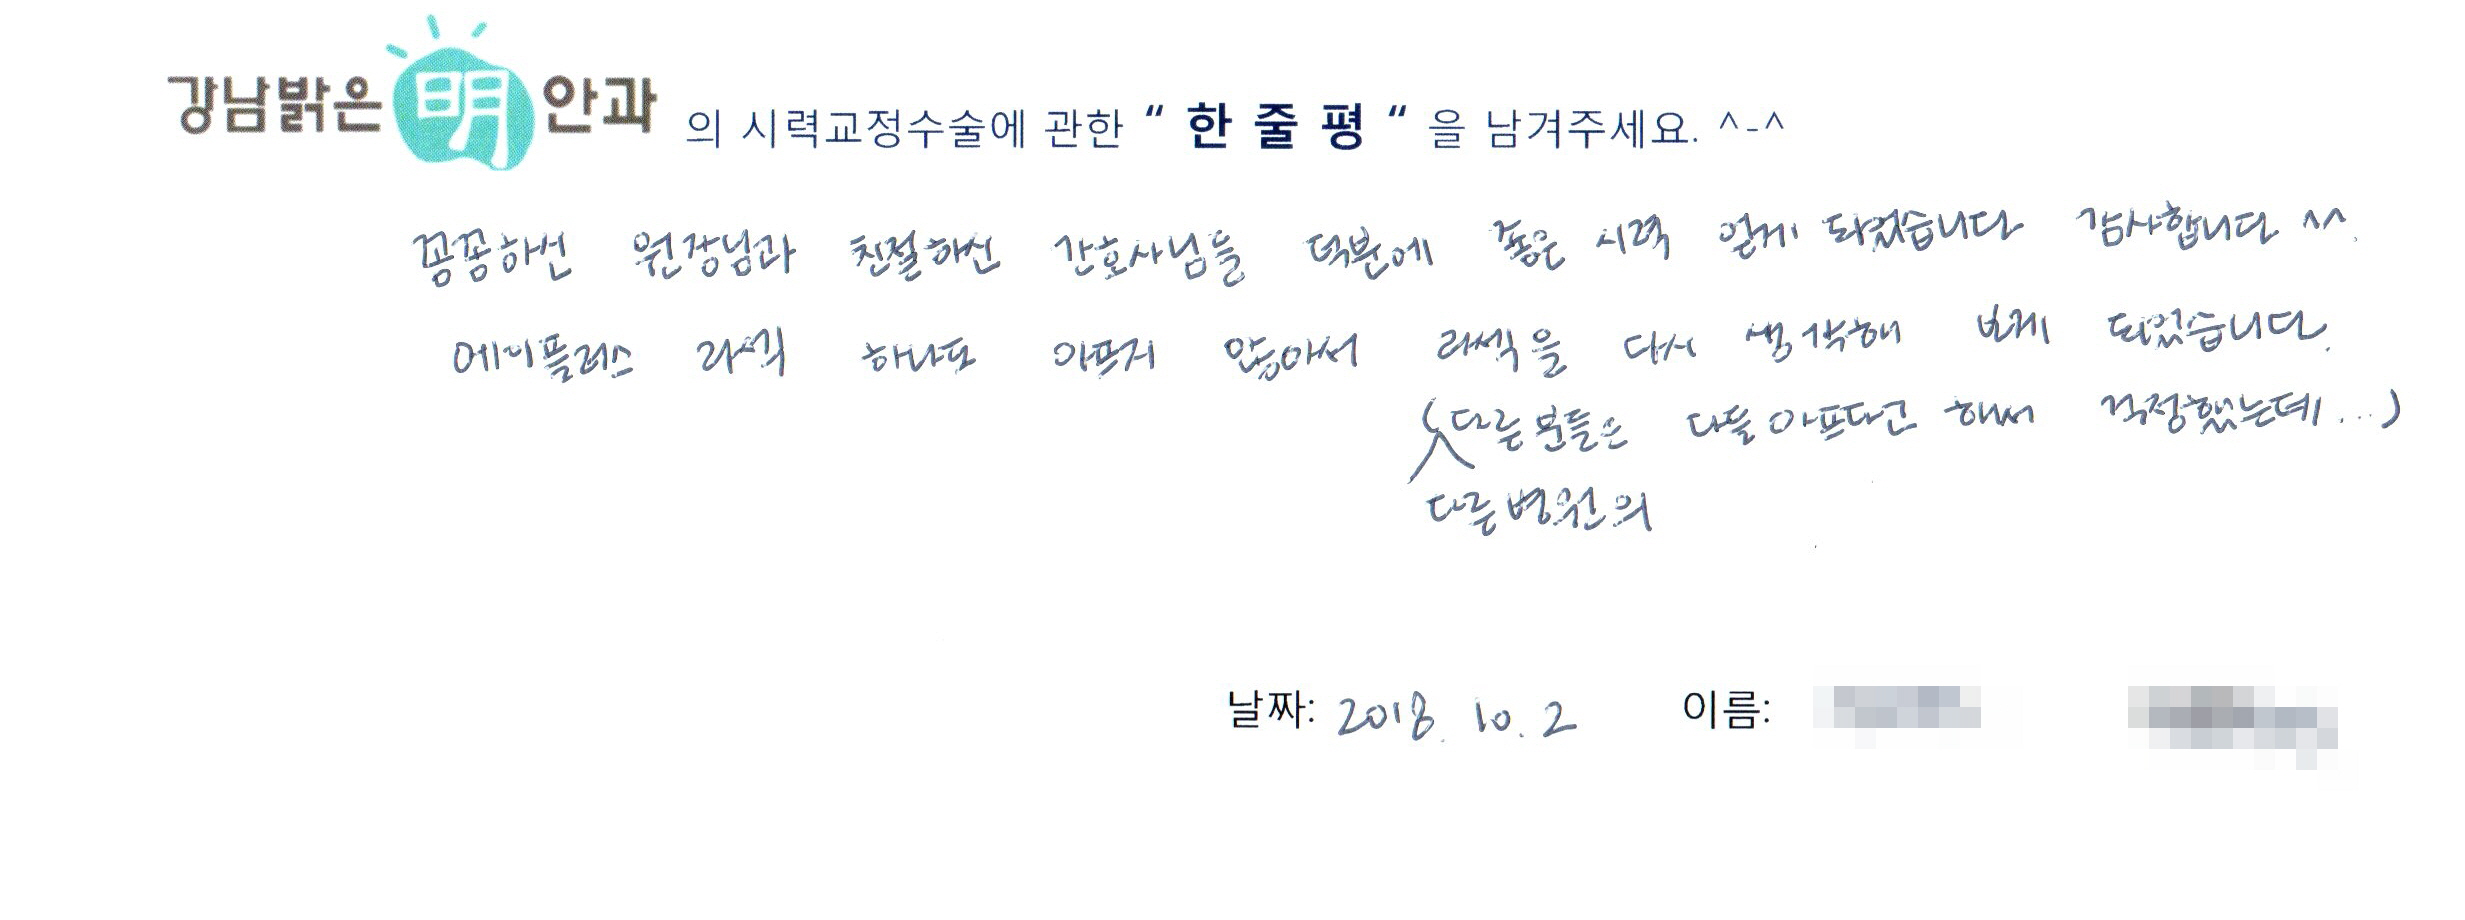 강남밝은明안과 의 시력교정수술에 관한 “ 한 줄 평 “ 을 남겨주세요. ^-^
꼼꼼하신 원장님과 친절하신 간호사님들 덕분에 좋은 시력 얻게 되었습니다 감사합니다 ^^.
에이플러스 라섹 하나도 아프지 않아서 라섹을 다시 생각해 보게 되었습니다.
(다른 분들은 다들 아프다고 해서 걱정했는데...)
다른 병원의
날짜: 2018. 10. 2 이름: